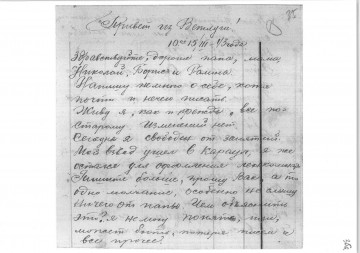 Привет из Ветлуги!
15 III-43 года
Здравствуйте, дорогие папа, мама
Николай, Борис и Галина.
Напишу немного о себе, хотя
почти и нечего писать.
Живу я, как и прежде, все по
старому. Изменений нет.
Сегодня я свободен от занятий.
Мой взвод ушел в караул, я же
остался для оформления
Пишите больше, прошу Вас, а то
одно молчание, особенно не слышу
ничего от папы. Чем объяснить
это? я не могу понять, или,
может быть, потеря писем и
все прочее.